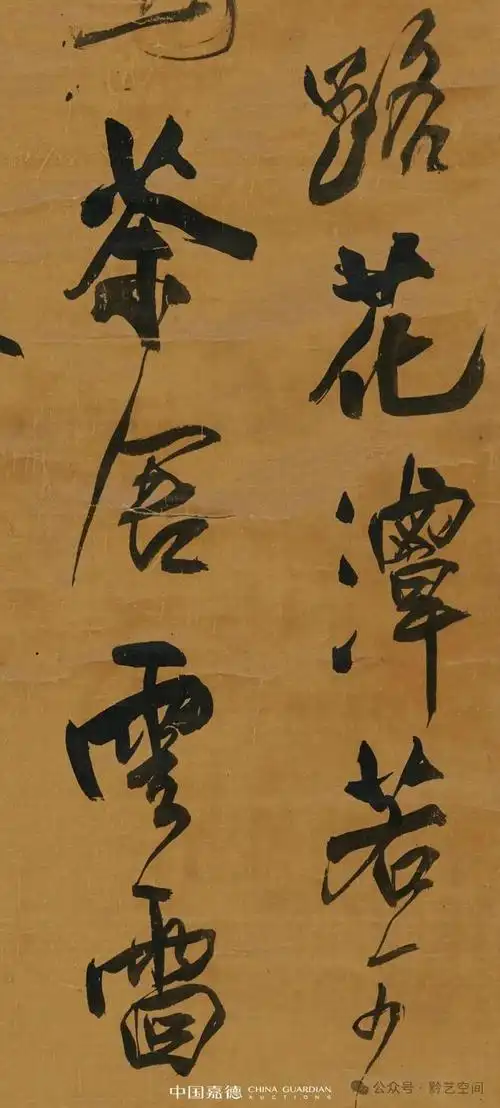 路花潭若
茶雲雷
中国嘉德 CHINA GUARDIAN AUCTIONS
公众号·黔艺空间